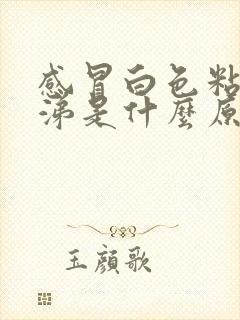 感冒白色粘
涕是什麼原
玉顏歌